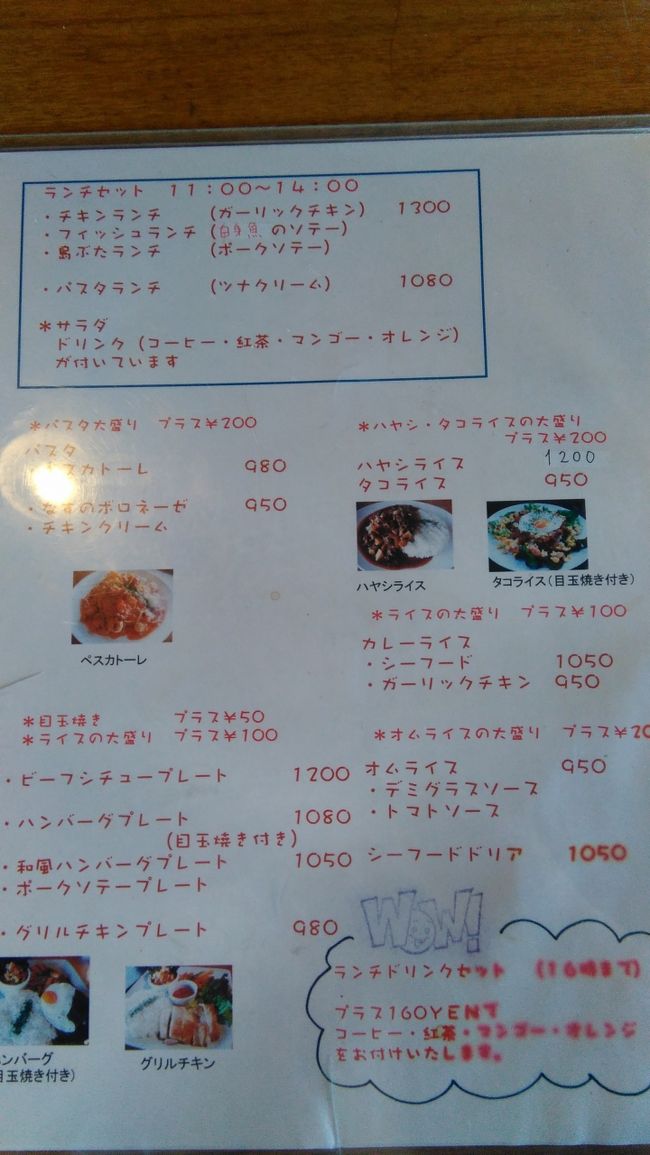 ランチセット 11:00~14:00
・チキンランチ (ガーリックチキン) 1300
・フィッシュランチ (白身魚 のソテー)
・島ぶたランチ (ポークソテー)
・パスタランチ (ツナクリーム) 1080
*サラダ
ドリンク (コーヒー・紅茶・マンゴー・オレンジ)
が付いています
*パスタ大盛り プラス¥200
パスタ
スカトーレ 980
・なすのボロネーゼ 950
・チキンクリーム
ペスカトーレ
*ハヤシ・タコライスの大盛り
プラス¥200
ハヤシライス 1200
タコライス 950
ハヤシライス
タコライス(目玉焼き付き)
*ライスの大盛り プラス¥100
カレーライス
・シーフード 1050
・ガーリックチキン 950
*目玉焼き プラス¥50
*ライスの大盛り プラス¥100
・ビーフシチュープレート 1200
・ハンバーグプレート 1080
(目玉焼き付き)
・和風ハンバーグプレート 1050
・ポークソテープレート
・グリルチキンプレート 980
ンバーグ
目玉焼き付き)
グリルチキン
*オムライスの大盛り プラス¥20
オムライス 950
・デミグラスソース
・トマトソース
シーフードドリア 1050
WOW!
ランチドリンクセット (16時まで)
・
プラス160YENで
コーヒー・紅茶・マンゴー・オレンジ
をお付けいたします。